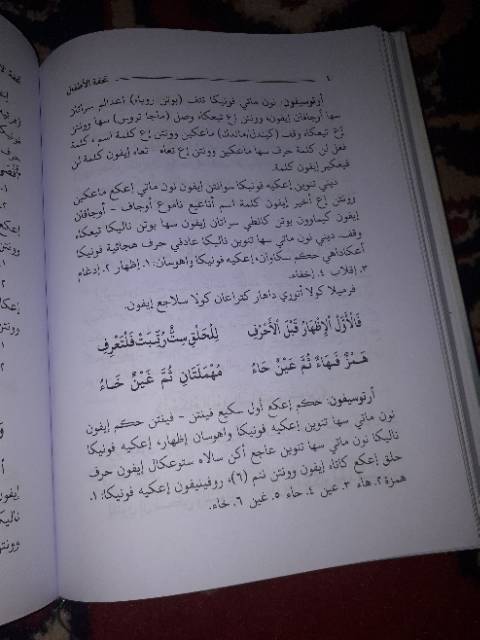 ٤ تحفة الأطفال
أرتوسيفون: نون ماتي فونيكا تتف (بوتن روباه) أعدالم سراتن
سها أوجافان إيفون، وونتن إع تيعكاه وصل (ماجا تروس) سها وونتن
إع تيعكاه وقف (كيندل/ماندك) ماعكين وونتن إع كلمة اسم، كلمة
فعل لن كلمة حرف سها ماعكين وونتن إع تعاه تعاه إيفون كلمة لن
فيعكير إيفون كلمة.
ديني تنوين إعكيه فونيكا سوانتن إيفون نون ماتي إعكم ماعكين
وونتن إع أخير إيفون كلمة اسم أتاعيع ناموع أوجاف - أوجافان
إيفون كيماوون بوتن كانطي سراتان إيفون سها بوتن ناليكا تيعكاه
وقف. ديني نون ماتي سها تنوين ناليكا عادفي حرف هجائية فونيكا
أعكاداهي حكم سكاوان، إعكيه فونيكا واهوسان: ١. إظهار ٢. إدغام
٣. إقلاب ٤. إخفاء.
فرميلا كولا أتوري داهار كتراعان كولا سلاجع إيفون.
فَالْأَوَّلُ الْإِظْهَارُ قَبْلَ الْأَحْرُفِ لِلْحَلْقِ سِتٌّ رُتِّبَتْ فَلْتَعْرِفِ
هَمْزٌ فَهَاءٌ ثُمَّ عَيْنٌ حَاءُ مُهْمَلَتَانِ ثُمَّ غَيْنٌ خَاءُ
أرتوسيفون: حكم إعكع أول سكيع فينتن - فينتن حكم إيفون
نون ماتي سها تنوين إعكيه فونيكا واهوسان إظهار، إعكيه فونيكا
ناليكا نون ماتي سها تنوين عاجع أكن سالاه ستوعكال إيفون حرف
حلق إعكع كاتاه إيفون وونتن ننم (٦)، روفينيفون إعكيه فونيكا: ١.
همزة ٢. هاء ٣. عين ٤. حاء ٥. غين ٦. خاء.